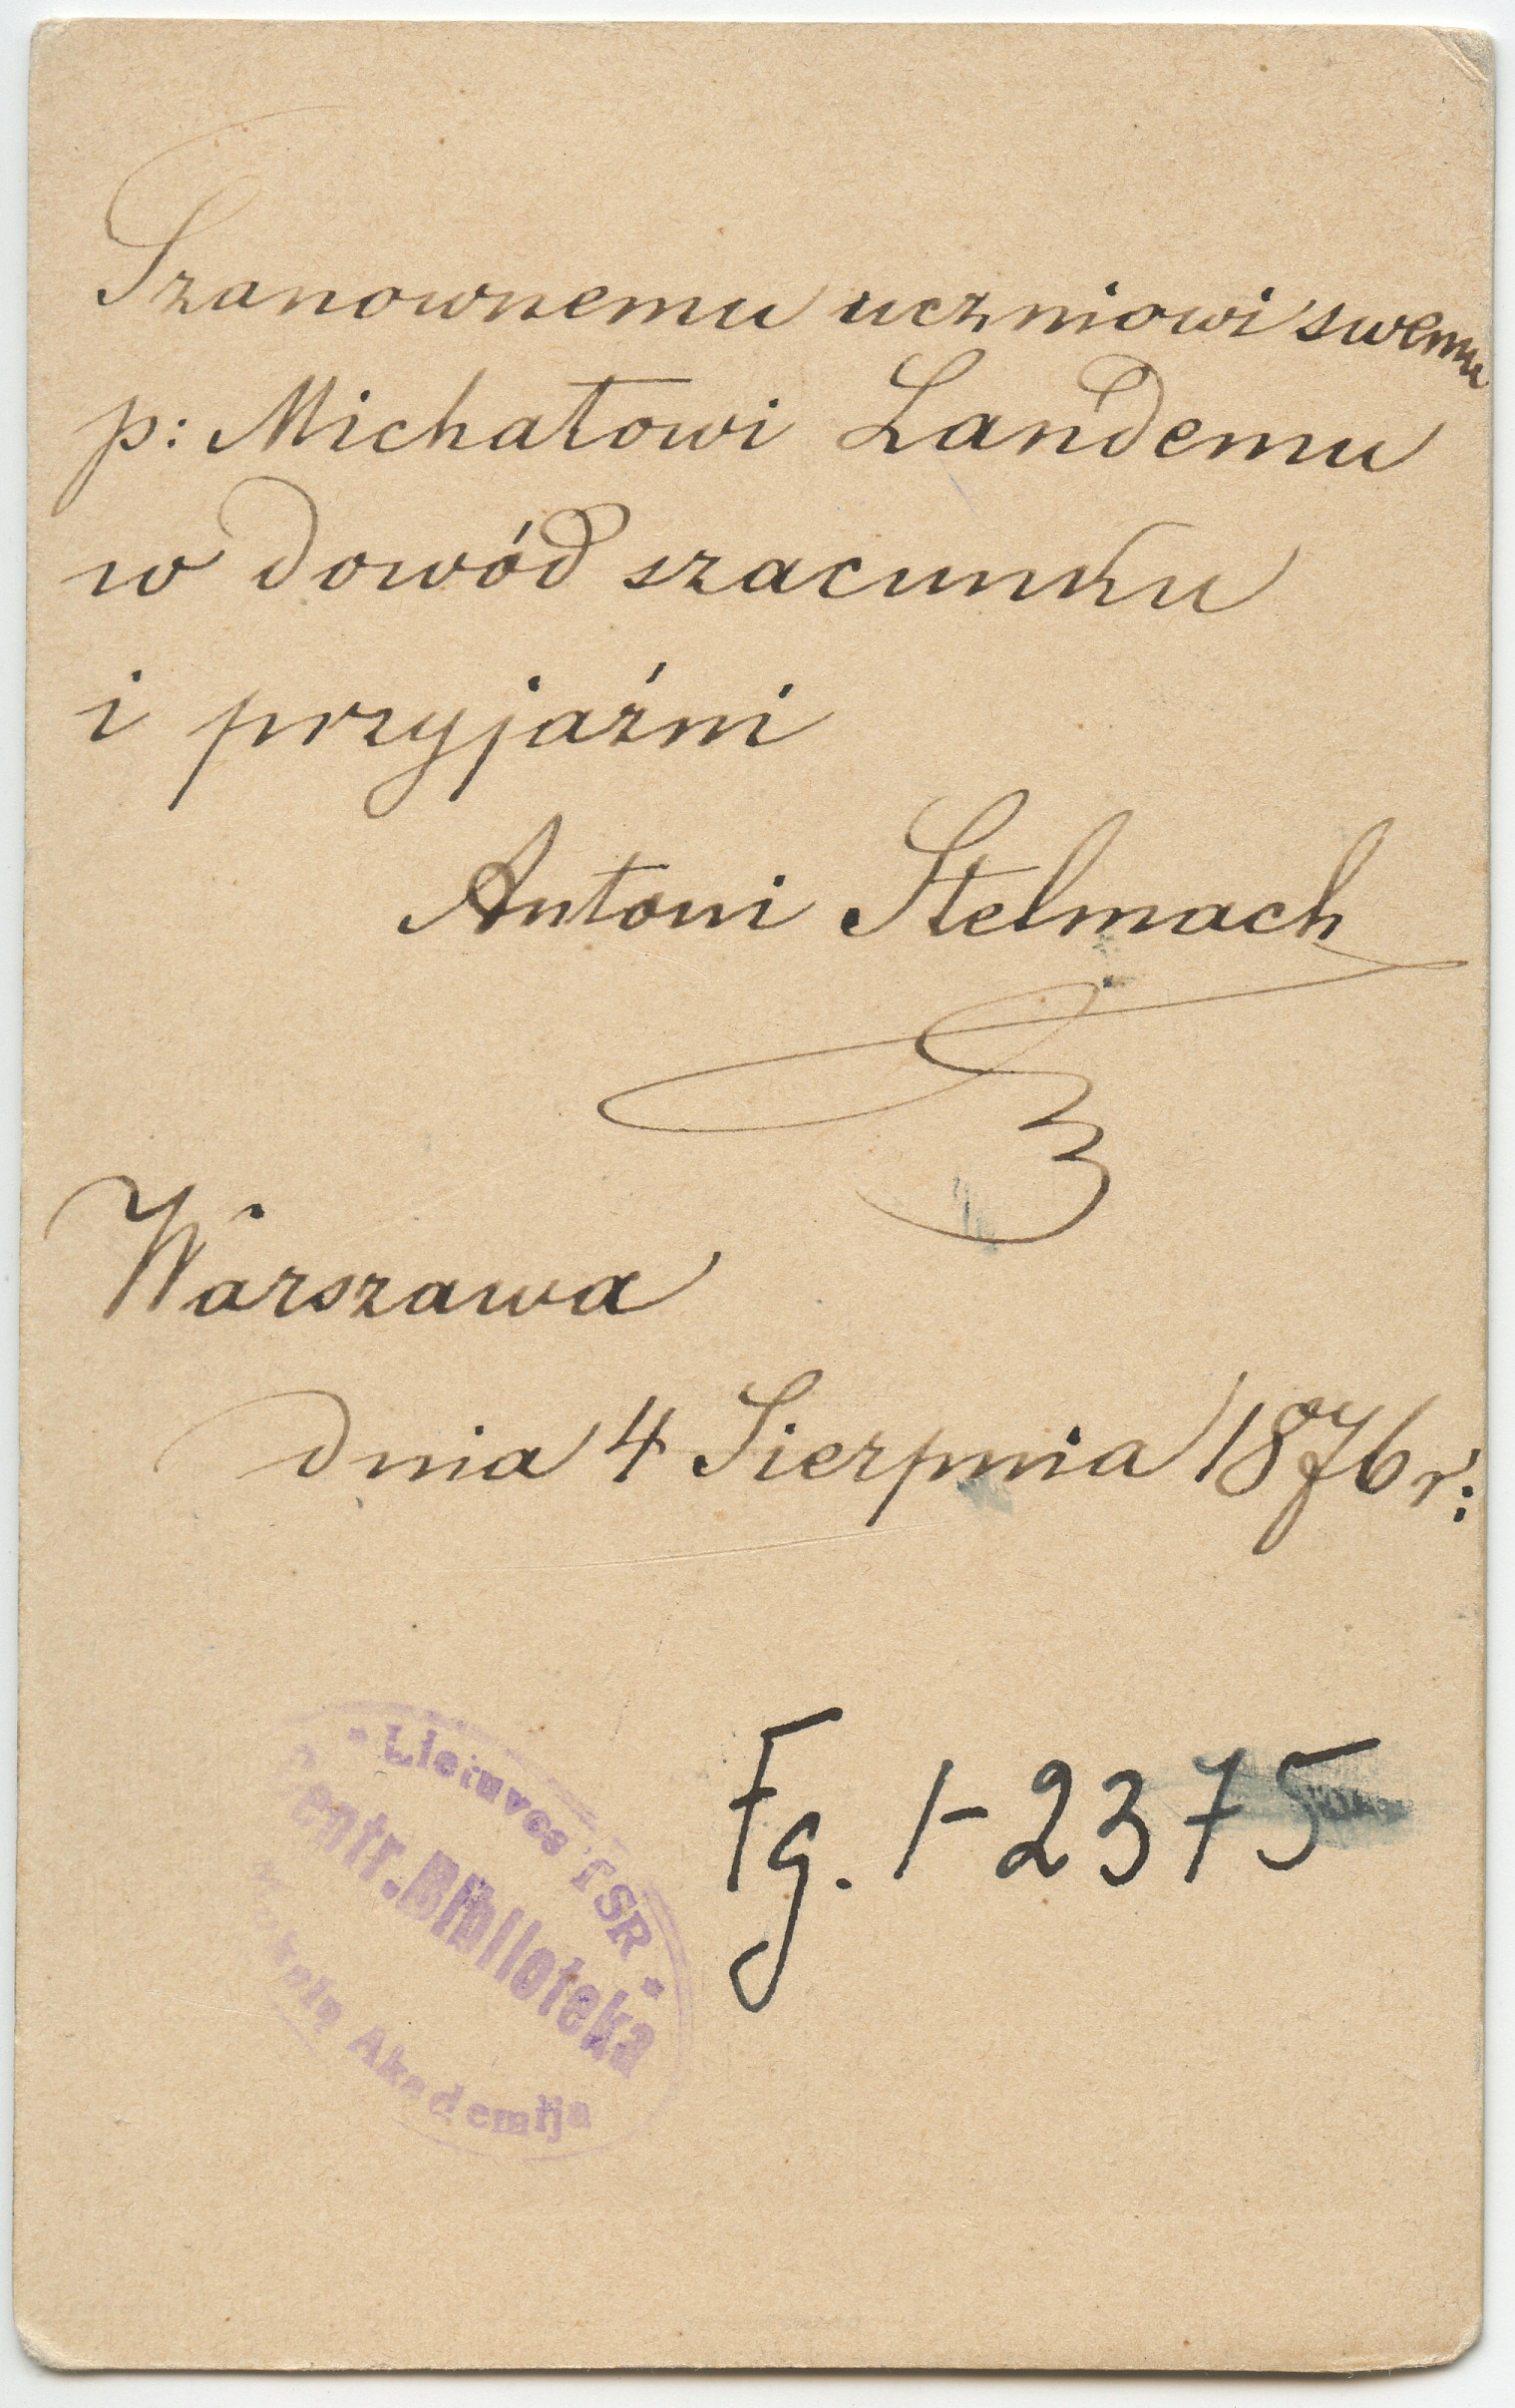 Szanownemu uczniowi swemu
p: Michałowi Landemu
w dowód szacunku
i przyjaźni
Antoni Stelmach
Warszawa
dnia 4 Sierpnia 1876 r:
Lietuvos TSR
Centr. Biblioteka
Akademija
Fg. 1-2375